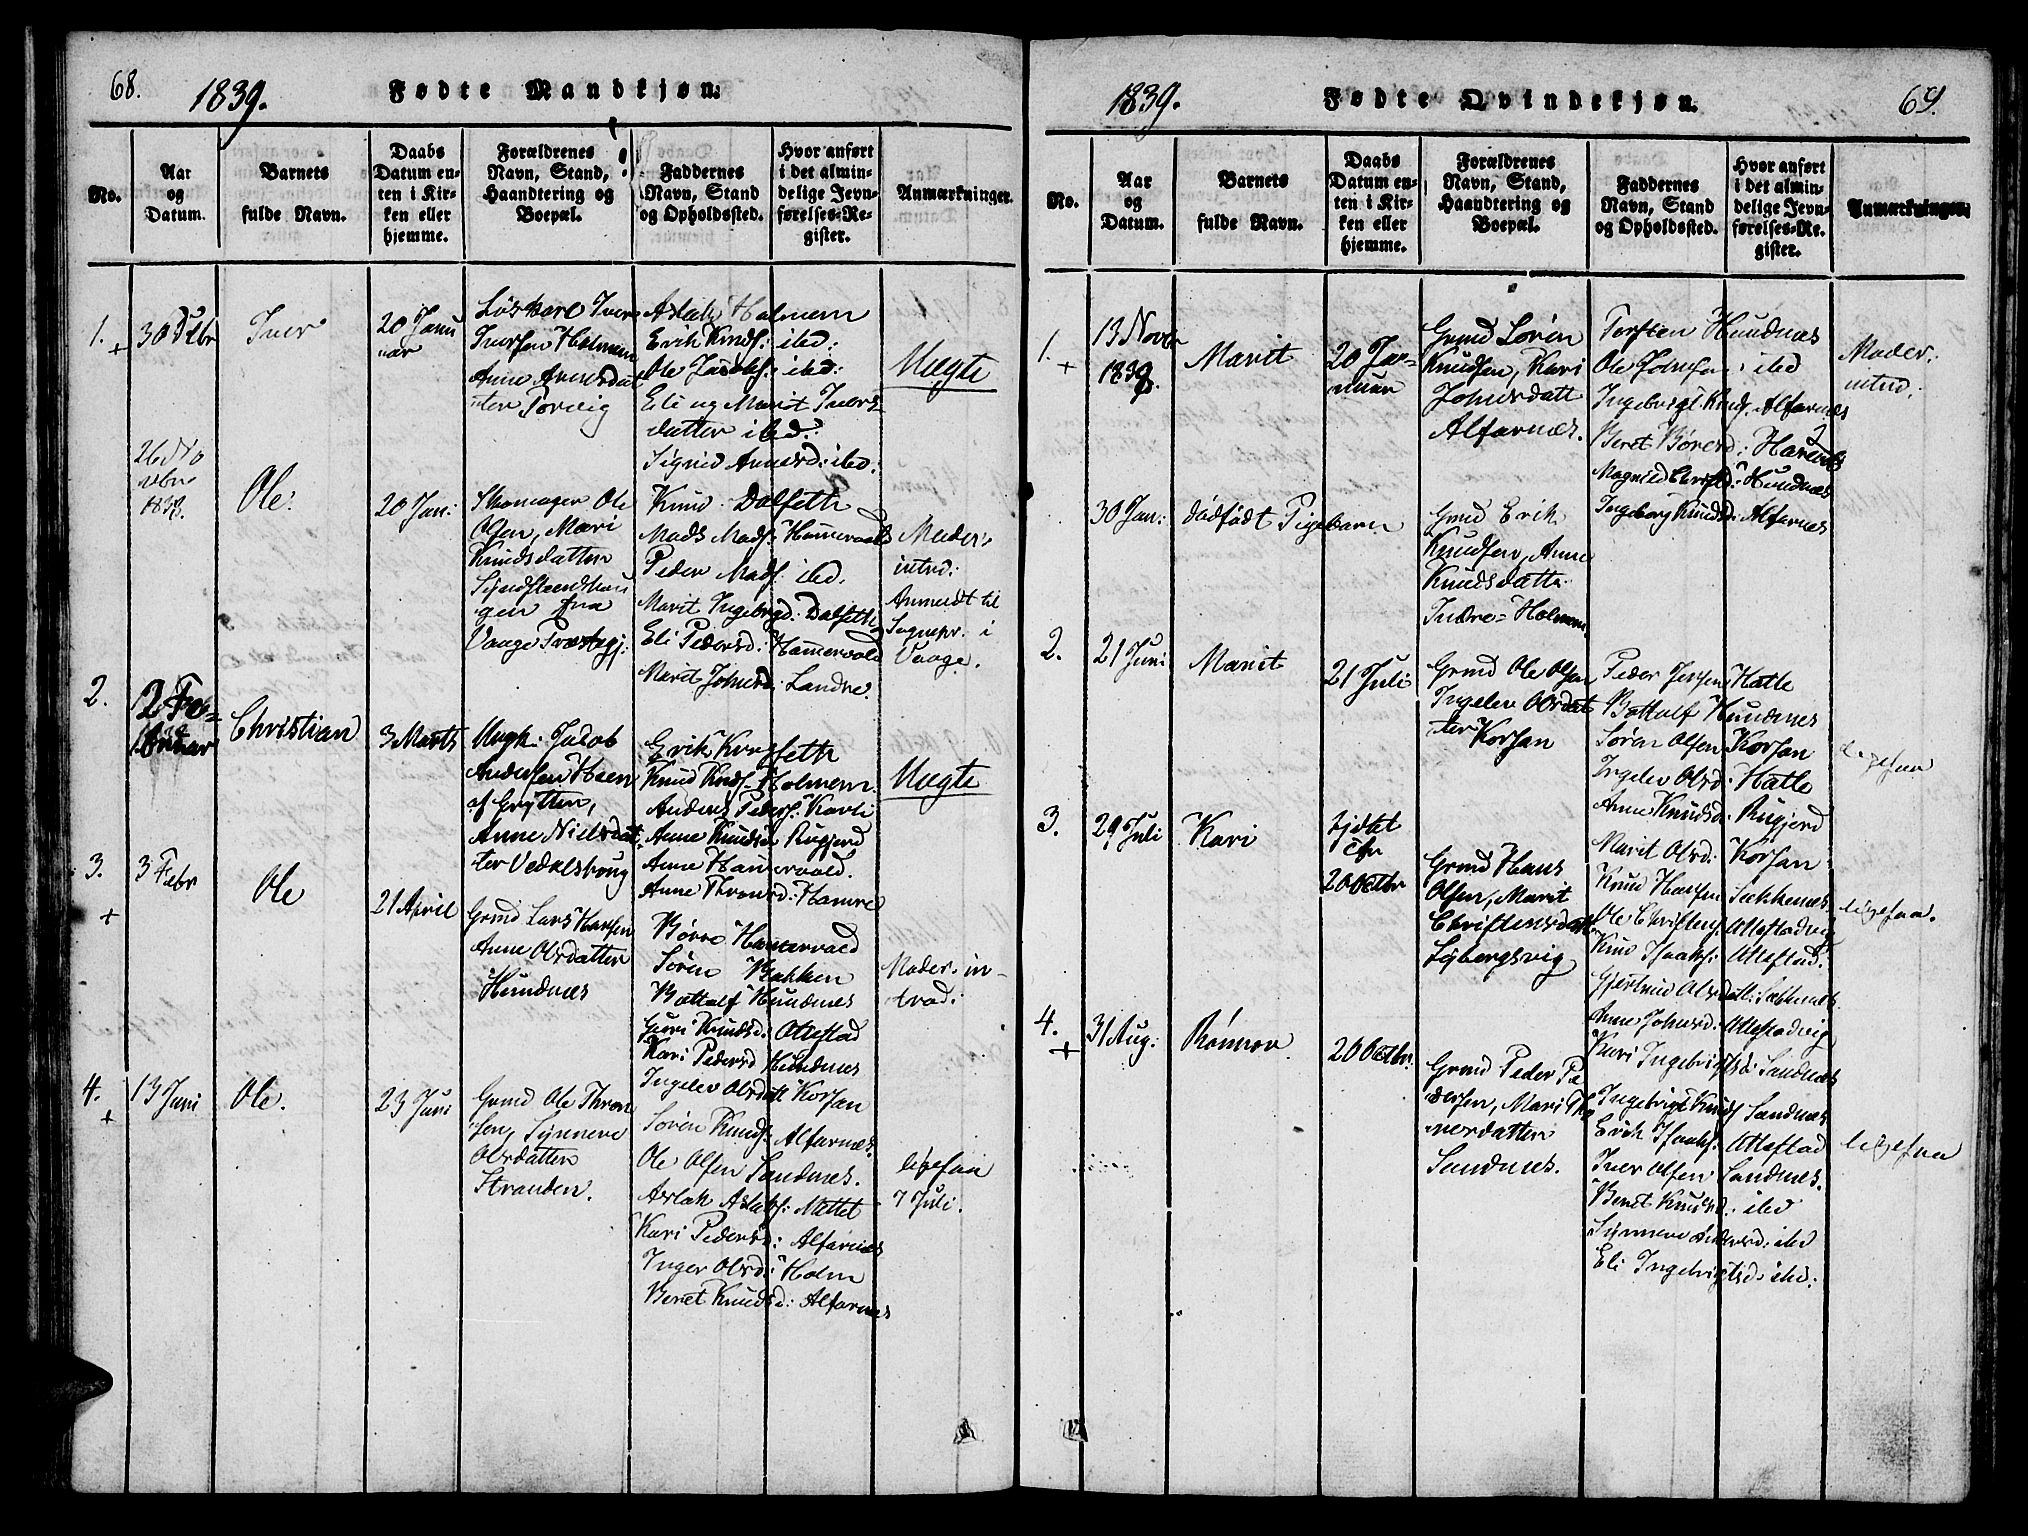 68.
1839.
Fødte Mandkjøn.
No.
Aar
og
Datum.
Barnets
fulde Navn.
Daabs
Datum en-
ten i Kir-
ken eller
hjemme.
Forældrenes
Navn, Stand,
Haandtering og
Boepæl.
Faddernes
Navn, Stand
og Opholdssted.
Hvor anført
i det almin-
delige Jevn-
førelses-Re-
gister.
Anmærkninger.
1.
+
Iver
20 Janu
uar
Løskarl Iver
Iversen Holmem
Anne Arnesdat
ter Torvig
Aslak Holmem
Erik Knuds: ibd:
Ole Jacobs: ibd:
Eli og Marit Ivers
datter ibd:
Sigrid Arnesd: ibd:
Uægte
Ole:
20 Jan:
Skomager Ole
Olsen, Mari
Knudsdatter
fra
Vaage Præstegj:
Knud Dalseth
Mads Mads: Hamervold
Peder Mads: ibd.
Marit Ingebrigd: Dalseth
Eli Pedersd: Hamervold
Marit Johnsd: Landre.
Moder
intrd:
Anmeldt til
Sognepr. i
Vaage.
2.
2 Fe-
bruar
Christian
3 Marts
Ungk: Jacob
Andersen Hoen
af Grytten,
Anne Nielsdat
ter Vedalshoug
Erik
Knud Knuds: Holmem
Anders Peders: Kavli
Anne Knudsd: Rugjerd
Anne Hamervold.
Anne Thronsd: Hamre
Uægte
3.
+
3 Febr
Ole
21 April
Grmd Lars Hansen
Anne Olsdatter
Hundnæs
Børre Hamervold
Søren Bakken
Bottolf Hundnes
Guri Knudsd: Ottestad
Kari Pedersd Hundnes
Ingelev Olsdatt Korsan
Moder in-
trod:
4.
+
13 Juni
Ole.
23 Juni
Grmd Ole Thron
sen, Synneve
Olsdatter
Stranden.
Søren Knuds: Alfarnæs.
Ole Olsen Sandnes.
Aslak Aslaks: Mittet
Kari Pedersd: Alfarnæs
Inger Olsd: Holm
Beret Knudsd: Alfarnes
ligesaa
7 Juli.
1839.
Fødte Qvindekjøn.
69.
No.
Aar
og
Datum.
Barnets
fulde Navn.
Daabs
Datum en-
ten i Kir-
ken eller
hjemme.
Forældrenes
Navn, Stand,
Haandtering og
Boepæl.
Faddernes
Navn, Stand
og Opholdssted.
Hvor anført
i det almin-
delige Jevn-
førelses-Re-
gister.
Anmærkninger.
1.
+
13 Novbr
Marit
20 Ja-
nuar
Grmd Søren
Knudsen, Kari
Johnsdatt
Alfarnæs.
Torsten Hundnæs
Ole Johnsen: ibd
Ingebrigt Knuds. Alfarnæs
Beret Børresd:
Magnild Christd: Hundnæs
Ingeborg Knudsd: Alfarnes
Moder
intrd.
30 Jan:
dødfødt Pigebarn
Grmd Erik
Knudsen, Anne
Knudsdatter
Indre-Holmem.
2.
21 Juni
Marit
21 Juli
Grmd Ole Olsen
Ingelev Olsdat
ter Korsan
Peder Jensen Hatle
Bottolf Hundnes
Søren Olsen Korsan
Ingelev Olsd: Hatle
Anne Knudsd: Rugjerd
Marit Olsd: Korsan
ligesaa
3.
29 Juli
Kari
20 Octbr
Grmd Hans
Olsen, Marit
Christensdatt
Sybergsvig
Knud Hansen Sækkenes
Ole Christens: Ottestadvig
Knud Isaaks: Ottestad.
Gjertrud Olsdatt: Sækkenes
Anne Johnsd: Ottestadvig
Kari Ingebrigtsd: Sandnes
ligesaa.
4.
+
31 Aug:
Rønnov
20 Octbr.
Grmd Peder Pe
dersen, Mari
Sandnes.
Ingebrigt Knuds Sandnæs
Erik Isaaks: Ottestad
Iver Olsen Sandnes.
Beret Knudsd: ibd
Synneve Andersd: ibd
Eli Ingebrigtsd: ibd:
ligesaa